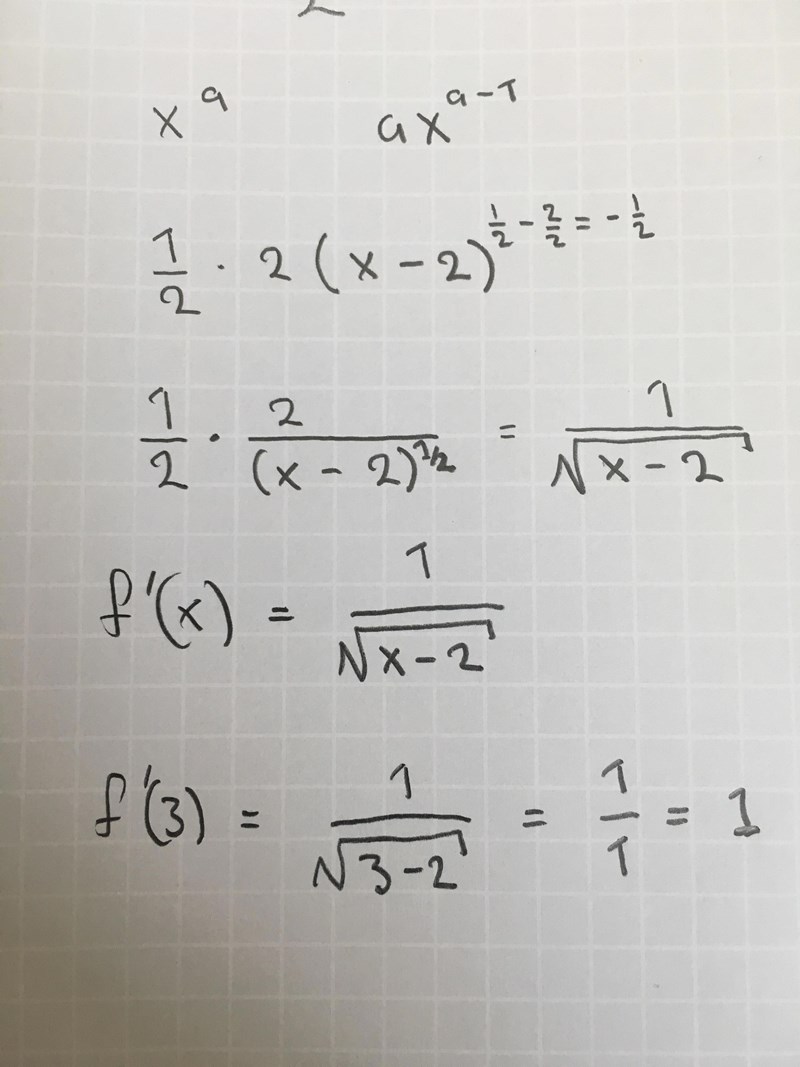 x^a    ax^(a-1)
1/2 · 2 (x - 2)^(1/2 - 2/2 = -1/2)
1/2 · 2/(x - 2)^(1/2) = 1/√(x - 2)
f'(x) = 1/√(x - 2)
f'(3) = 1/√(3 - 2) = 1/1 = 1